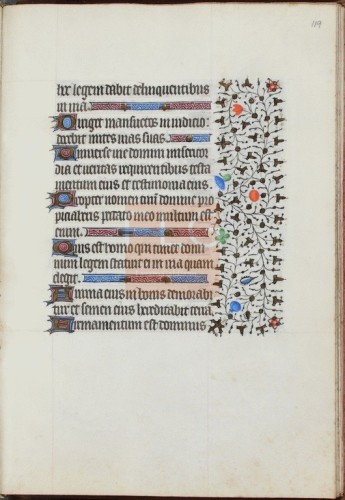 109
ter legem dabit delinquentibus
in via.
Diriget mansuetos in iudicio:
docebit mites vias suas.
Universe vie domini misericor
dia et veritas requirentibus testa
mentum eius et testimonia eius.
Propter nomen tuum domine pro
piciaberis peccato meo multum est
enim.
Quis est homo qui timet domi
num legem statuit ei in via quam
elegit.
Anima eius in bonis demorabi
tur et semen eius hereditabit terram
Firmamentum est dominus